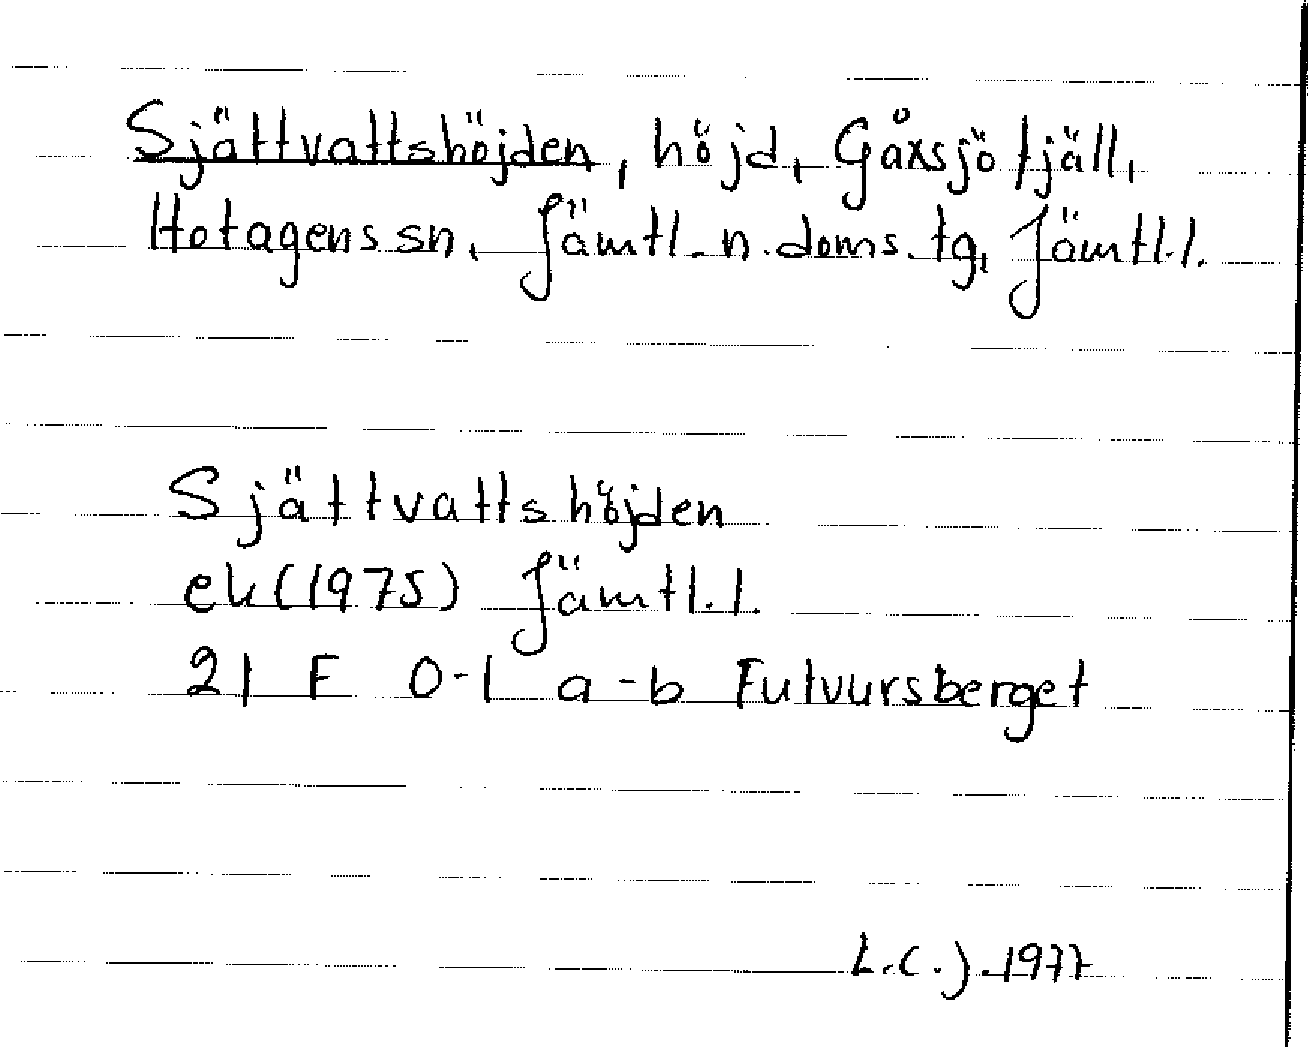 Sjättvattshöjden, höjd, Gåxsjö fjäll,
Hotagens sn, Jämtl. n. doms. tg, Jämtl. l.
Sjättvattshöjden
ek (1975) Jämtl. l.
21 F 0-1 a-b Fulvursberget
L.C.J. 1977